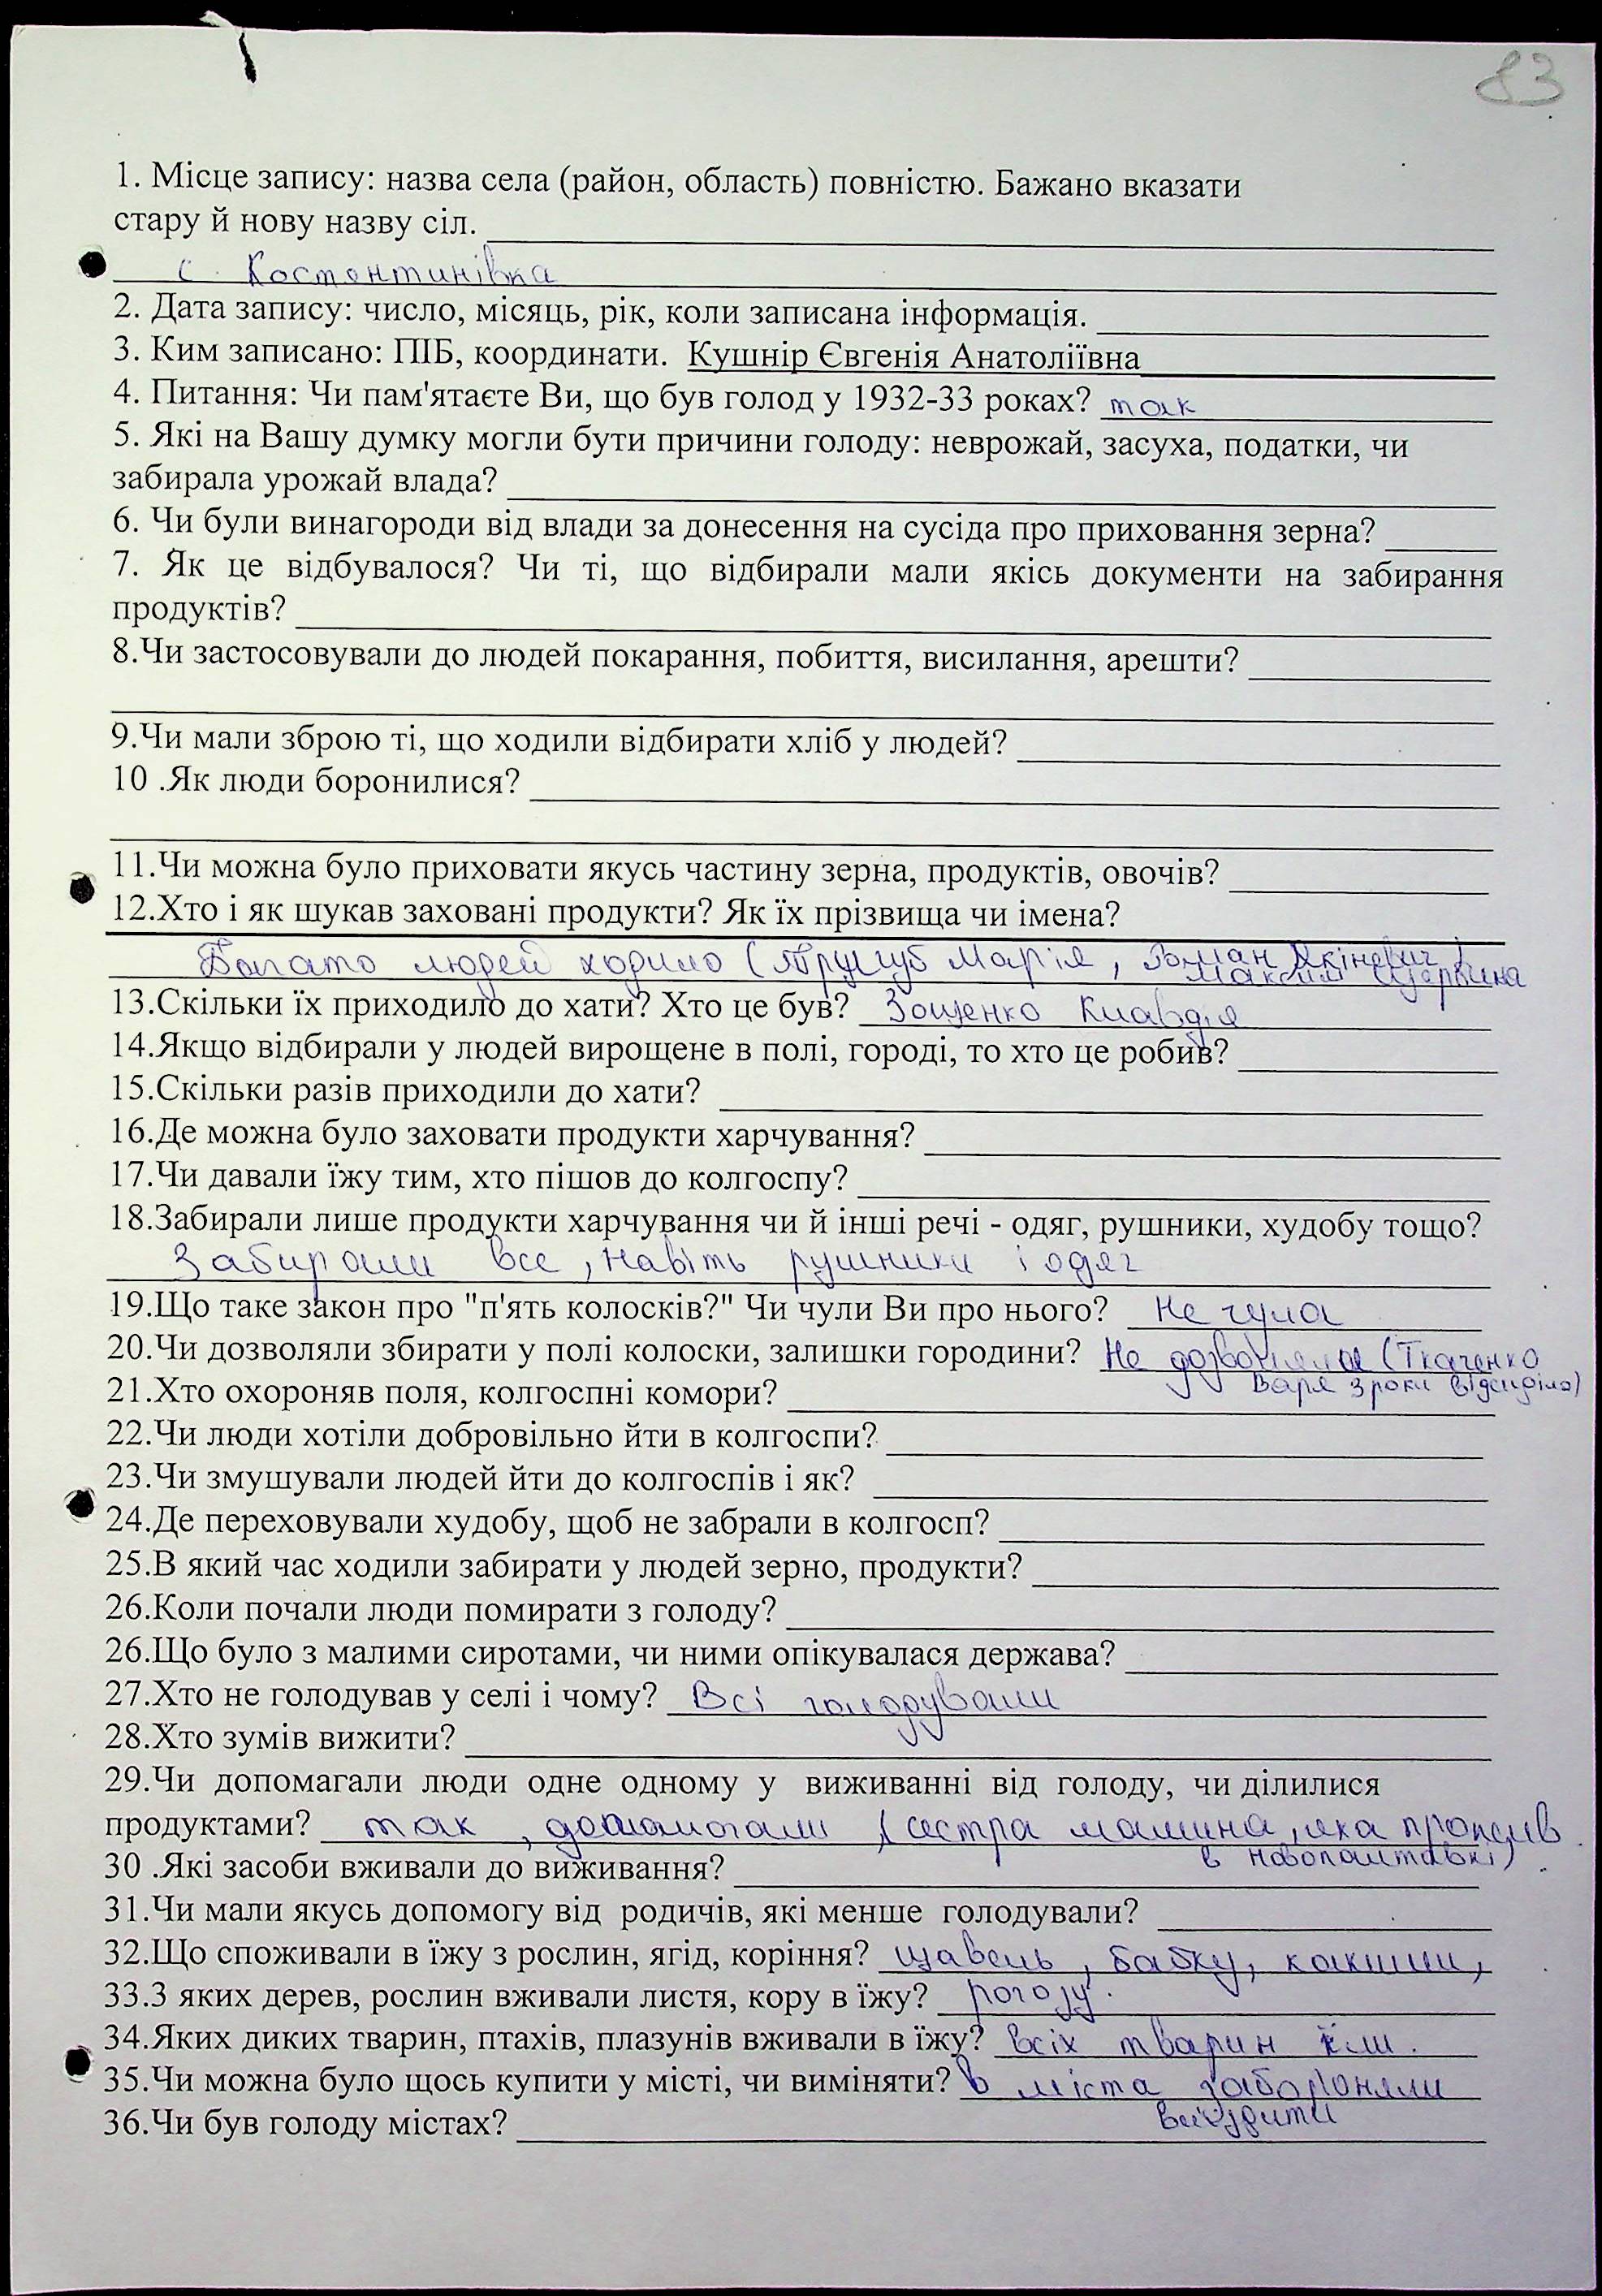 83
1. Місце запису: назва села (район, область) повністю. Бажано вказати
стару й нову назву сіл.
с. Костентинівка
2. Дата запису: число, місяць, рік, коли записана інформація.
3. Ким записано: ПІБ, координати. Кушнір Євгенія Анатоліївна
4. Питання: Чи пам'ятаєте Ви, що був голод у 1932-33 роках? так
5. Які на Вашу думку могли бути причини голоду: неврожай, засуха, податки, чи
забирала урожай влада?
6. Чи були винагороди від влади за донесення на сусіда про приховання зерна?
7. Як це відбувалося? Чи ті, що відбирали мали якісь документи на забирання
продуктів?
8.Чи застосовували до людей покарання, побиття, висилання, арешти?
9.Чи мали зброю ті, що ходили відбирати хліб у людей?
10 .Як люди боронилися?
11.Чи можна було приховати якусь частину зерна, продуктів, овочів?
12.Хто і як шукав заховані продукти? Як їх прізвища чи імена?
Багато людей ходило ( Марія, Роман
Максим
13.Скільки їх приходило до хати? Хто це був? Зощенко Клавдія
14.Якщо відбирали у людей вирощене в полі, городі, то хто це робив?
15.Скільки разів приходили до хати?
16.Де можна було заховати продукти харчування?
17.Чи давали їжу тим, хто пішов до колгоспу?
18.Забирали лише продукти харчування чи й інші речі - одяг, рушники, худобу тощо?
Забирали все, навіть рушники і одяг
19.Що таке закон про "п'ять колосків?" Чи чули Ви про нього? Не чула
20.Чи дозволяли збирати у полі колоски, залишки городини? Не дозволяли (Ткаченко
Варя 3 роки відсиділа)
21.Хто охороняв поля, колгоспні комори?
22.Чи люди хотіли добровільно йти в колгоспи?
23.Чи змушували людей йти до колгоспів і як?
24.Де переховували худобу, щоб не забрали в колгосп?
25.В який час ходили забирати у людей зерно, продукти?
26.Коли почали люди помирати з голоду?
26.Що було з малими сиротами, чи ними опікувалася держава?
27.Хто не голодував у селі і чому? Всі голодували
28.Хто зумів вижити?
29.Чи допомагали люди одне одному у виживанні від голоду, чи ділилися
продуктами? так, допомагали (сестра мамина, яка
в Новополтавкі)
30 .Які засоби вживали до виживання?
31.Чи мали якусь допомогу від родичів, які менше голодували?
32.Що споживали в їжу з рослин, ягід, коріння? щавель, бабку, какиши,
33.З яких дерев, рослин вживали листя, кору в їжу? рогозу.
34.Яких диких тварин, птахів, плазунів вживали в їжу? всіх тварин їли.
35.Чи можна було щось купити у місті, чи виміняти? в міста забороняли
виїздити
36.Чи був голоду містах?